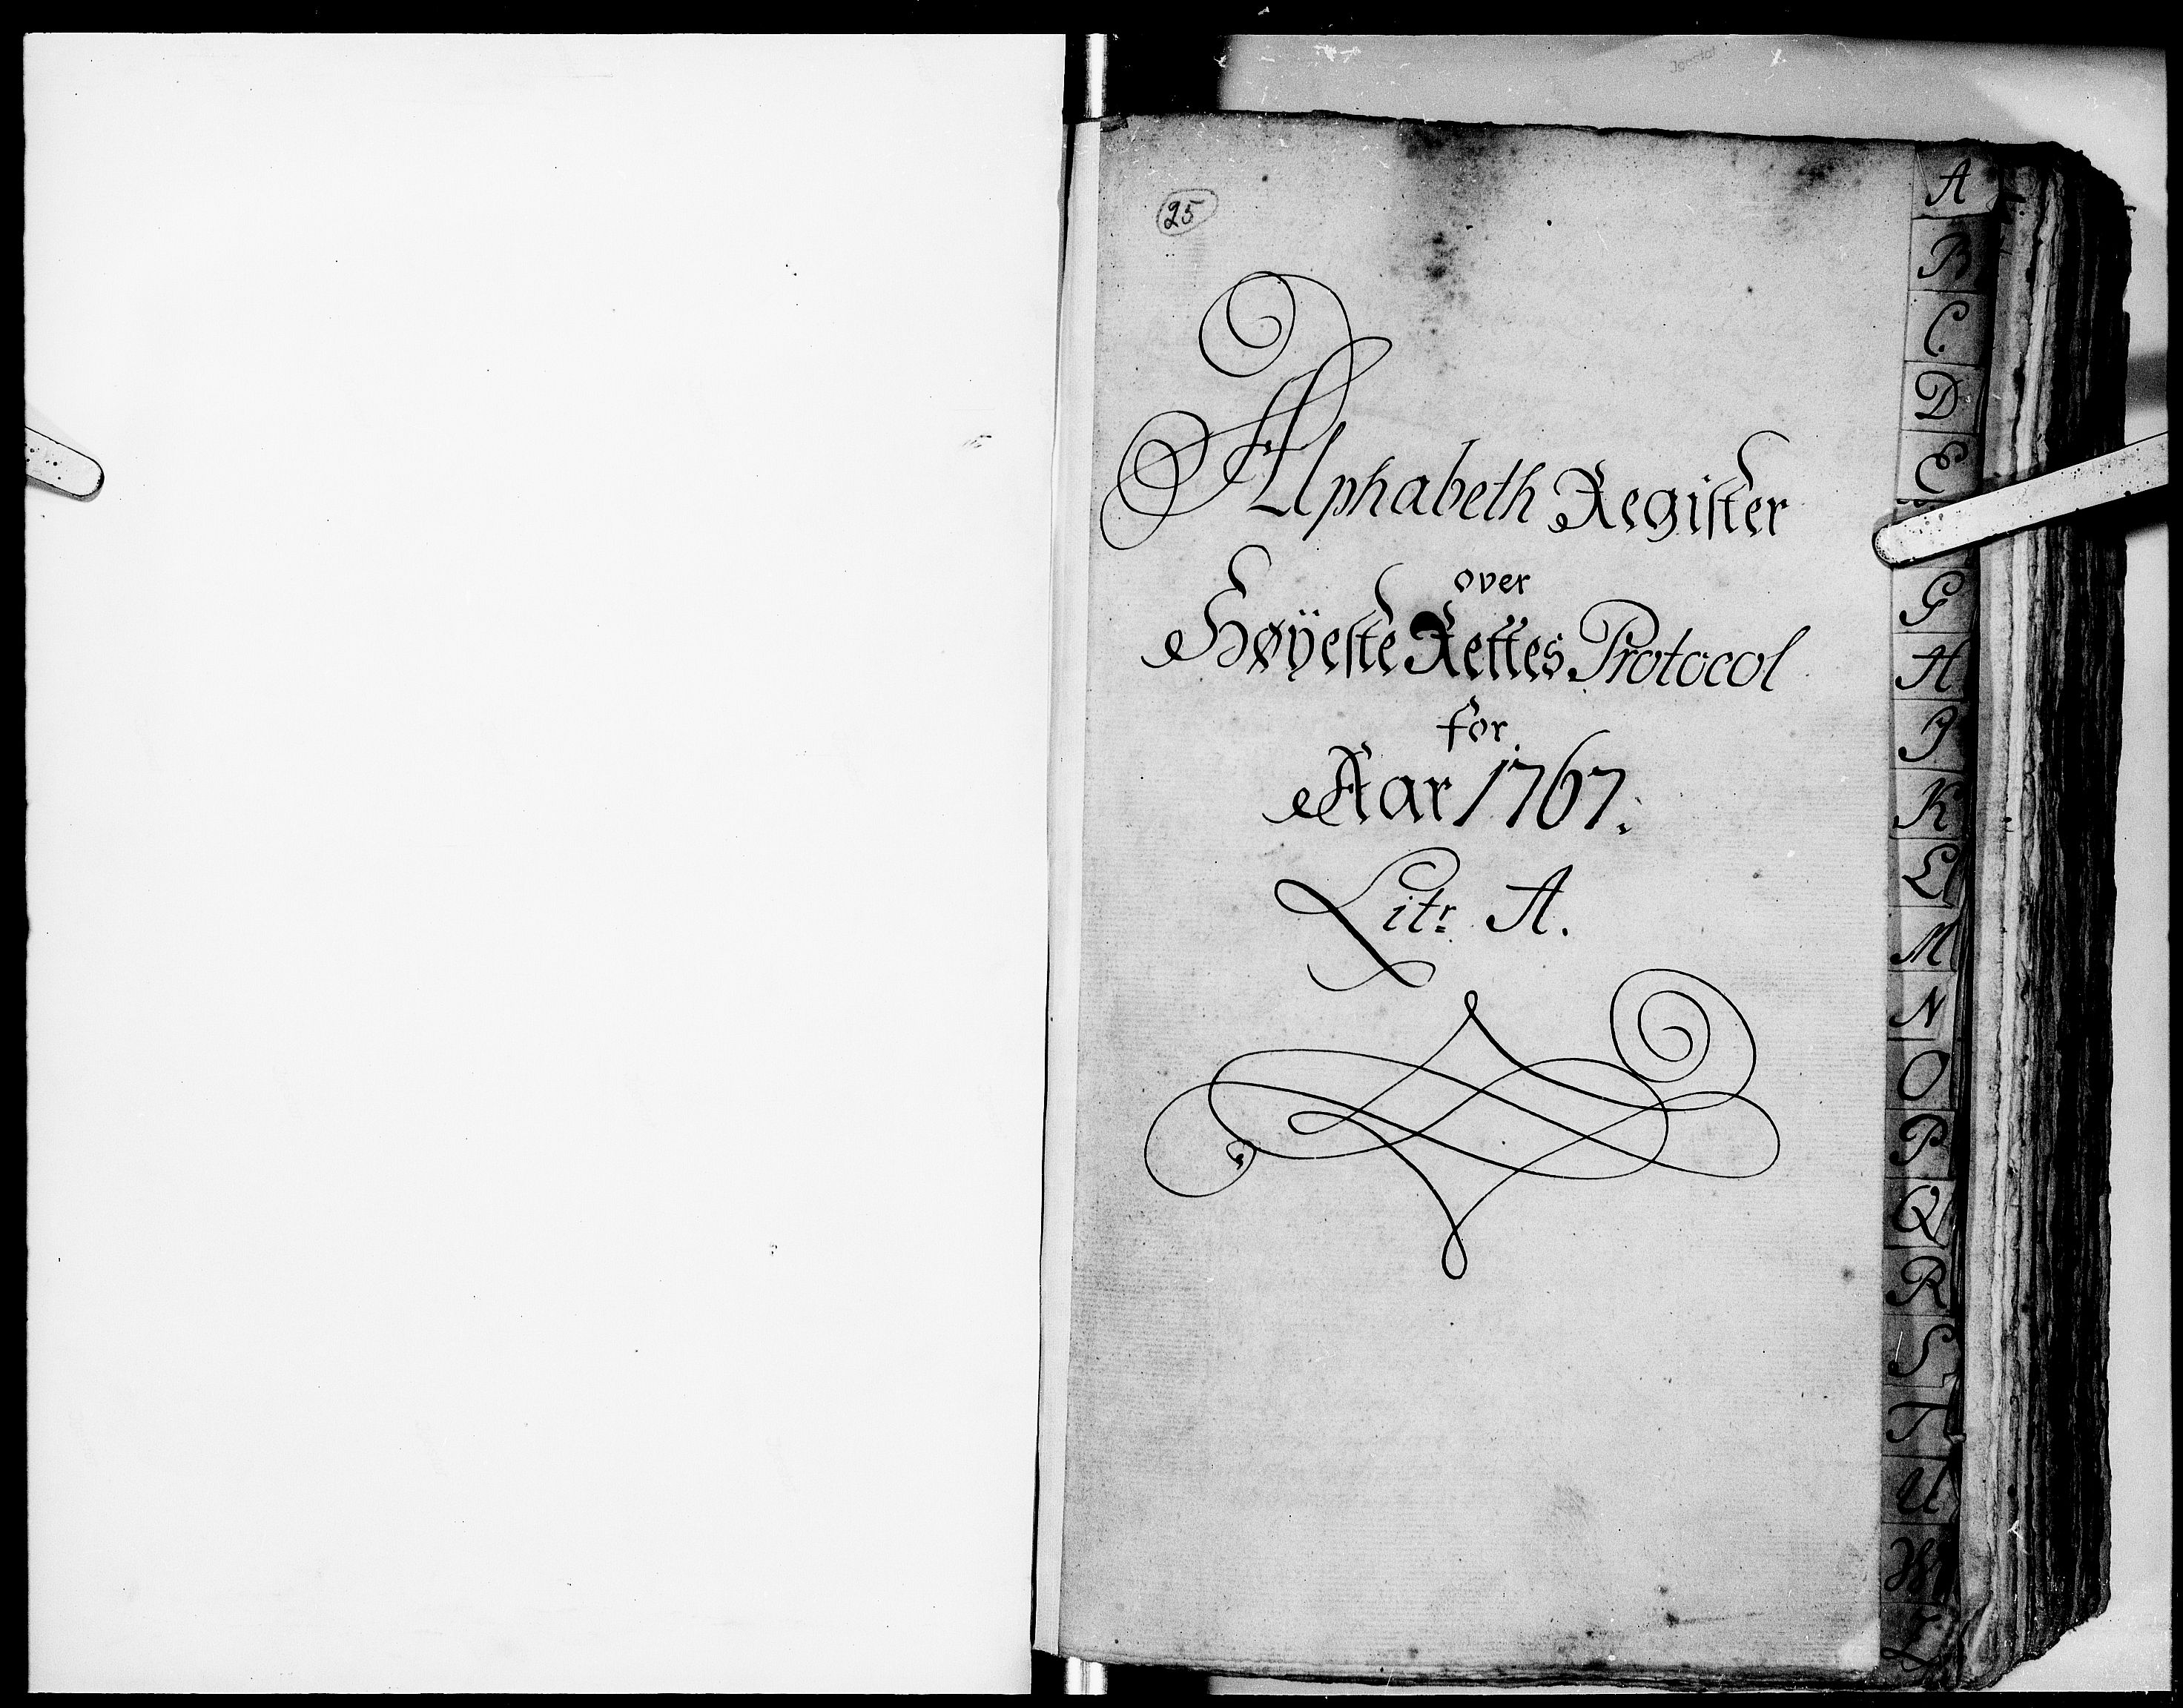 25
Alphabeth Register
over
Høÿeste Rettes Protocol
for
Aar 1767.
Litr A.
A
B
C
D
E
G
H
I
K
L
M
N
O
P
Q
R
S
T
U
W